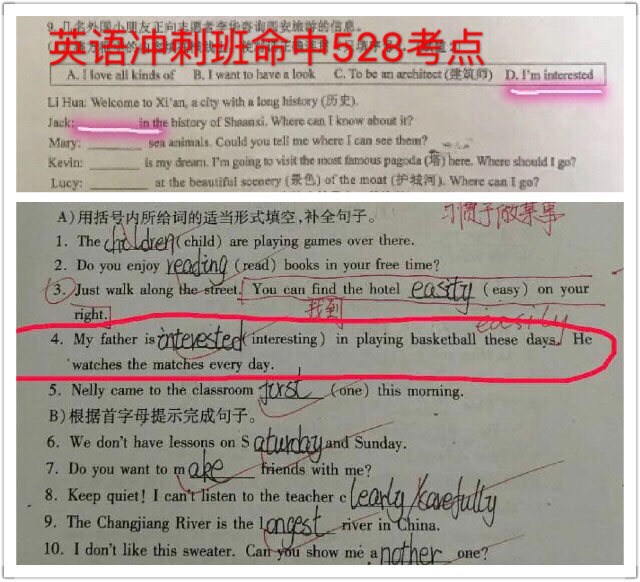 9. 几名外国小朋友正向志愿者李华咨询西安旅游的信息。
英语冲刺班命中528考点
A. I love all kinds of B. I want to have a look C. To be an architect (建筑师) D. I'm interested
Li Hua: Welcome to Xi'an, a city with a long history (历史).
Jack: ______ in the history of Shaanxi. Where can I know about it?
Mary: ______ sea animals. Could you tell me where I can see them?
Kevin: ______ is my dream. I'm going to visit the most famous pagoda (塔) here. Where should I go?
Lucy: ______ at the beautiful scenery (景色) of the moat (护城河). Where can I go?
A) 用括号内所给词的适当形式填空,补全句子。
习惯于做某事
1. The children (child) are playing games over there.
2. Do you enjoy reading (read) books in your free time?
3. Just walk along the street. You can find the hotel easity (easy) on your
right.
找到
easily
4. My father is interested (interesting) in playing basketball these days. He
watches the matches every day.
5. Nelly came to the classroom first (one) this morning.
B) 根据首字母提示完成句子。
6. We don't have lessons on Saturday and Sunday.
7. Do you want to make friends with me?
8. Keep quiet! I can't listen to the teacher clearly/carefully
9. The Changjiang River is the longest river in China.
10. I don't like this sweater. Can you show me another one?